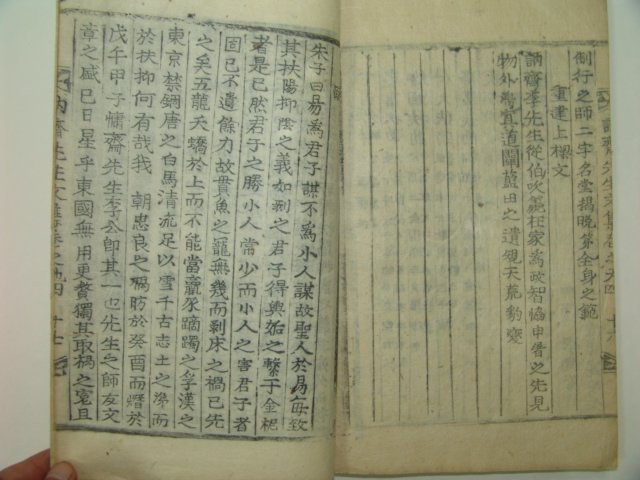 制行之師二字名堂揭晚𡻕全身之範
重建上樑文
訥齋李先生從伯吹箎在家爲政智協申屠之先見
物外尋宜道闡藍田之遺規天荒豹變
朱子曰易爲君子謀不爲小人謀故聖人於易每致
其扶陽抑陰之義如剝之君子得輿姤之繫于金柅
者是已然君子之勝小人常少而小人之害君子者
固已不遺餘力故貫魚之寵無幾而剝床之禍已先
之矣五龍夭矯於上而不能當羸豕蹢躅之孚漢之
東京禁錮唐之白馬淸流足以雪千古志士之涕而
於扶抑何有哉我 朝忠良之禍昉於癸酉而㬱於
戊午甲子慵齋先生李公卽其一也先生之師友文
章之盛已日星乎東國無用更贅獨其取禍之寃且
訥齋先生文集卷之四 十七